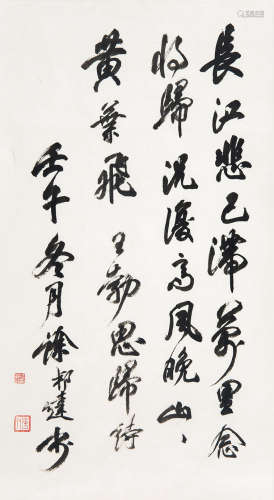 長江悲已滯萬里念
將歸況復高風晚山々
黃葉飛 王勃思歸詩
壬午冬月徐邦達書